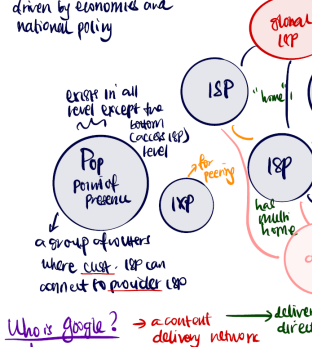 driven by economics and
national policy
global
ISP
ISP
"home"
exists in all
level except the
bottom
(access ISP)
level
POP
point of
presence
for
peering
IXP
ISP
has
multi
home
a group of routers
where cust. ISP can
connect to provider ISP
Who is google?
→ a content
delivery network
→ deliver
direct